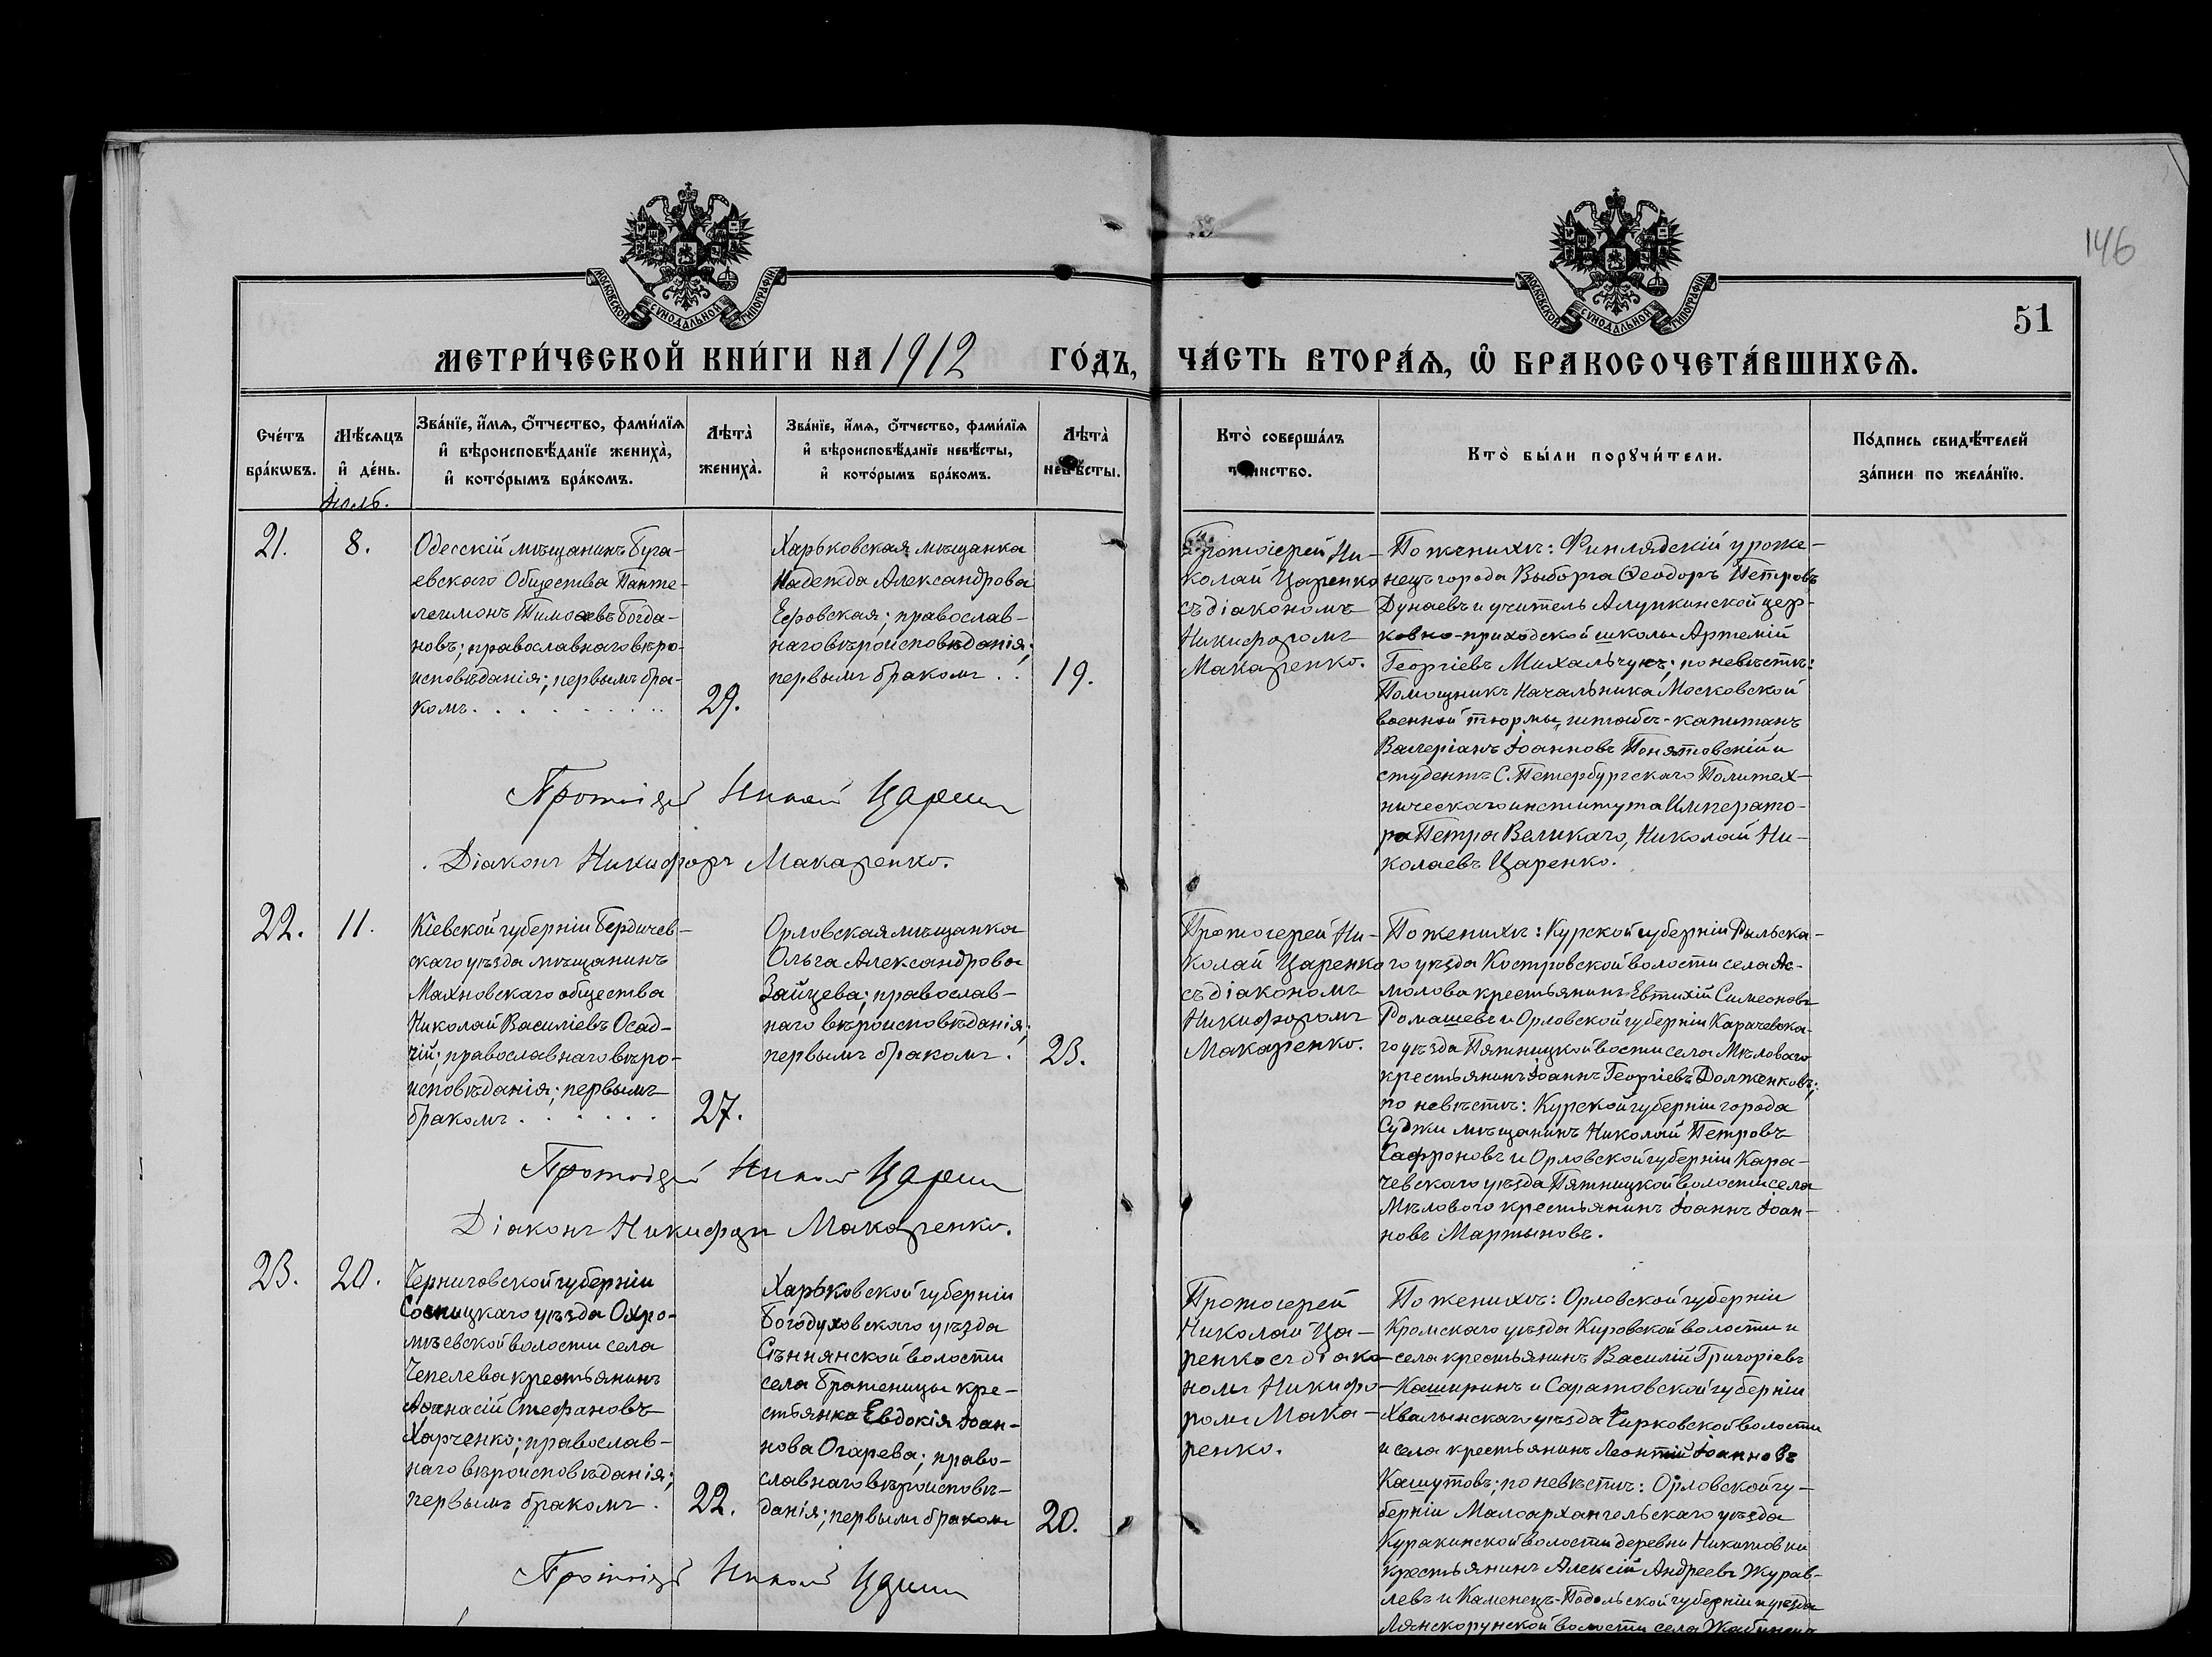 146
51
МОСКОВСКОЙ СУНОДАЛЬНОЙ ТИПОГРАФІИ
МОСКОВСКОЙ СУНОДАЛЬНОЙ ТИПОГРАФІИ
МЕТРИ́ЧЕСКОЙ КНИ́ГИ НА 1912 ГО́ДЪ, ЧА́СТЬ ВТОРА́Ѧ, Ѡ҆ БРАКОСОЧЕТА́ВШИХСѦ.
Сче́тъ
бра́кѡвъ.
Мѣ́сѧцъ
и҆ де́нь.
Зва́нїе, и҆́мѧ, ѻ҆́тчество, фами́лїѧ
и҆ вѣроисповѣ́данїе женихà,
и҆ кото́рымъ бра́комъ.
Лѣтà
женихà.
Зва́нїе, и҆́мѧ, ѻ҆́тчество, фами́лїѧ
и҆ вѣроисповѣ́данїе невѣ́сты,
и҆ кото́рымъ бра́комъ.
Лѣтà
невѣ́сты.
Ктò соверша́лъ
таинство.
Ктò бы́ли порꙋчи́тели.
По́дпись свидѣ́телей
за́писи по жела́нїю.
Іюль.
21.
8.
Одесскій мѣщанинъ Буга-
евскаго Общества Панте-
леимонъ Тимоѳевъ Богда-
новъ; православнаго вѣро-
исповѣданія; первымъ бра-
комъ.
29.
Харьковская мѣщанка
Надежда Александрова
Еровская; православ-
наго вѣроисповѣданія;
первымъ бракомъ
19.
Протоіерей Ни-
колай Царенко
съ діакономъ
Никифоромъ
Макаренко.
По женихѣ: Финлядскій уроже-
нецъ города Выборга Ѳеодоръ Петровъ
Дунаевъ и учитель Алупкинской цер-
ковно-приходской школы Артемій
Георгіевъ Михальчукъ; по невѣстѣ:
Помощникъ Начальника Московской
военной тюрмы, штабсъ-капитанъ
Валеріанъ Іоанновъ Понятовскій и
студентъ С.Петербургскаго Политех-
ническаго института Императо-
ра Петра Великаго, Николай Ни-
колаевъ Царенко.
Протоіерей Николай Царенко
Діаконъ Никифоръ Макаренко.
22.
11.
Кіевской губерніи Бердичев-
скаго уѣзда мѣщанинъ
Махновскаго общества
Николай Василіевъ Осад-
чій; православнаго вѣро-
исповѣданія; первымъ
бракомъ
27.
Орловская мѣщанка
Ольга Александрова
Зайцева; православ-
наго вѣроисповѣданія;
первымъ бракомъ.
23.
Протоіерей Ни-
колай Царенко
съ діакономъ
Никифоромъ
Макаренко.
По женихѣ: Курской губерніи Рыльска-
го уѣзда Костровской волости села Ас-
молова крестьянинъ Евтихій Симеоновъ
Ромашевъ и Орловской губерніи Карачевска-
го уѣзда Пятницкой вости села Мѣловаго
крестьянинъ Іоаннъ Георгіевъ Долженковъ;
по невѣстѣ: Курской губерніи города
Суджи мѣщанинъ Николай Петровъ
Сафроновъ и Орловской губерніи Кара-
чевскаго уѣзда Пятницкой волости села
Мѣлового крестьянинъ Іоаннъ Іоан-
новъ Мартыновъ.
Протоіерей Николай Царенко
Діаконъ Никифоръ Макаренко.
23.
20.
Черниговской губерніи
Сосницкаго уѣзда Охро-
мѣевской волости села
Чепелева крестьянинъ
Аѳанасій Стефановъ
Харченко; православ-
наго вѣроисповѣданія;
первымъ бракомъ.
22.
Харьковской губерніи
Богодуховскаго уѣзда
Сѣннянской волости
села Братеницы кре-
стьянка Евдокія Іоан-
нова Огарева; право-
славнаго вѣроисповѣ-
данія; первымъ бракомъ
20.
Протоіерей
Николай Ца-
ренко съ діако-
номъ Никифо-
ромъ Мака-
ренко.
По женихѣ: Орловской губерніи
Кромскаго уѣзда Кировской волости и
села крестьянинъ Василій Григоріевъ
Каширинъ и Саратовской губерніи
Хвалынскаго уѣзда Чирковской волости
и села крестьянинъ Леонтій Іоанновъ
Кашутовъ; по невѣстѣ: Орловской гу-
берніи Малоархангельскаго уѣзда
Куракинской волости деревни Никитовки
крестьянинъ Алексій Андреевъ Журав-
левъ и Каменецъ-Подольской губерніи и уѣзда
Лянскорунской волости села
Протоіерей Николай Царенко